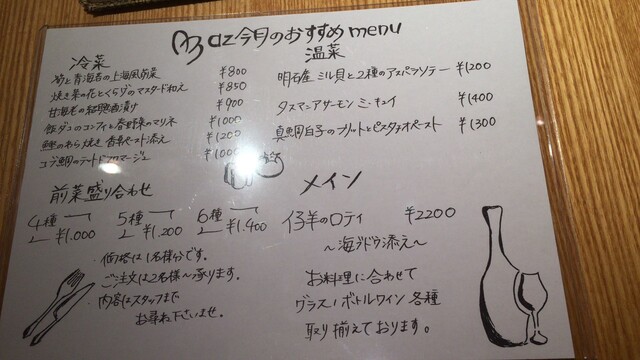 Maz 今月のおすすめ menu
冷菜
と青海苔の上海風前菜 ¥800
焼き菜の花とくらげのマスタード和え ¥850
甘海老の紹興酒漬け ¥900
飯ダコのコンフィと春野菜のマリネ ¥1000
のわら焼き 香草ペースト添え ¥1200
コブ鯛のテートドフロマージュ ¥1000
温菜
明石産 ミル貝と2種のアスパラソテー ¥1200
タスマニアサーモン ミ・キュイ ¥1400
真鯛白子のフリットとピスタチオペースト ¥1300
前菜盛り合わせ
4種 ¥1.000
5種 ¥1.200
6種 ¥1.400
・価格は1名様分です。
ご注文は2名様〜承ります。
・内容はスタッフまで
お尋ね下さいませ。
メイン
仔羊のロティ ¥2200
〜海ブドウ添え〜
お料理に合わせて
グラス/ボトルワイン 各種
取り揃えております。